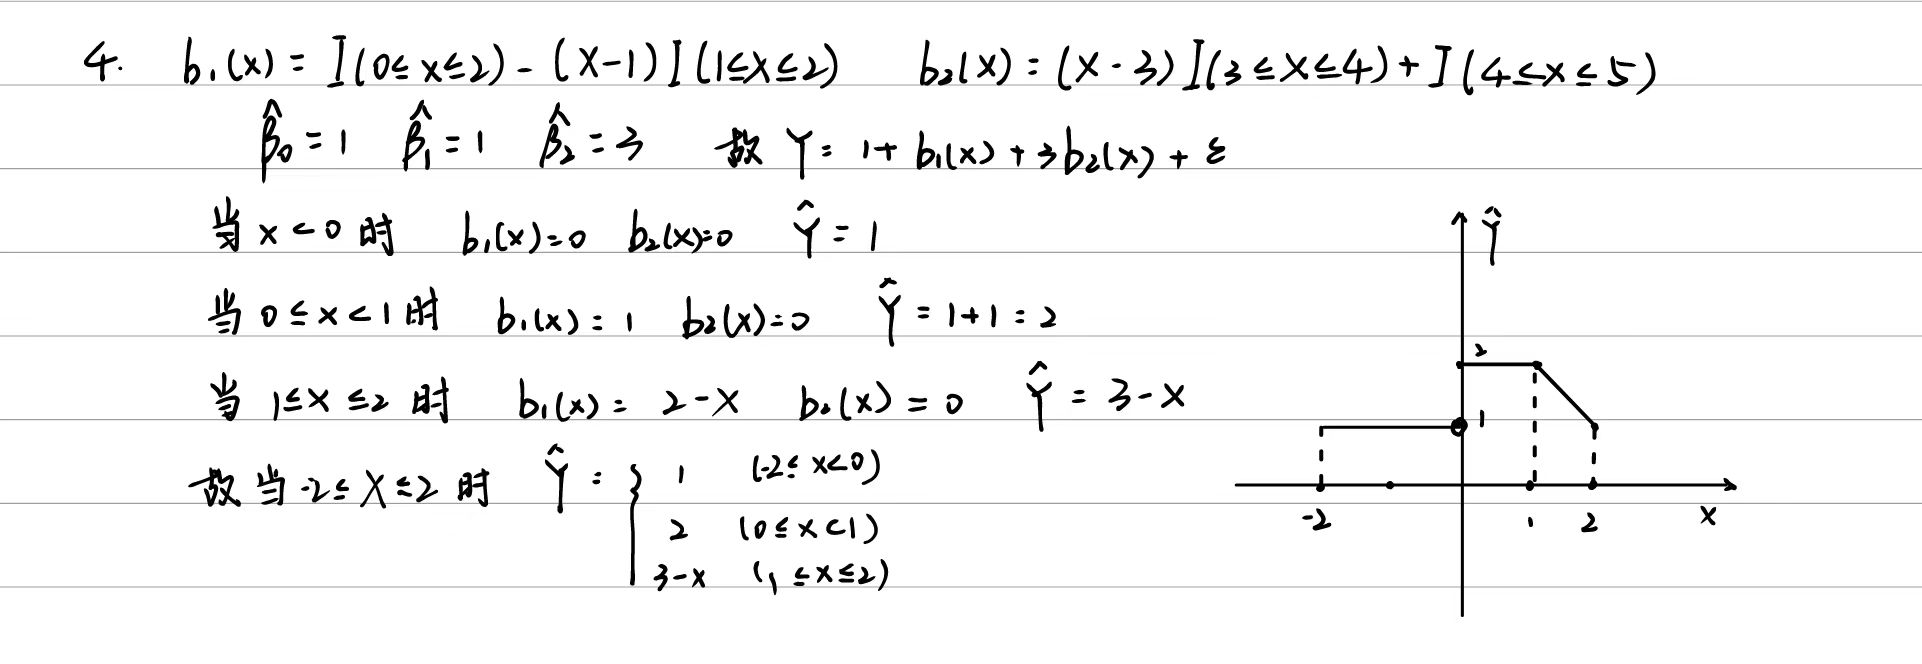 4. b₁(x) = I(0≤x≤2) - (x-1)I(1≤x≤2) b₂(x) = (x-3)I(3≤x≤4) + I(4≤x≤5)
β̂₀ = 1 β̂₁ = 1 β̂₂ = 3 故 Y = 1 + b₁(x) + 3b₂(x) + ε
当 x<0 时 b₁(x)=0 b₂(x)=0 Ŷ = 1
当 0≤x<1 时 b₁(x) = 1 b₂(x)=0 Ŷ = 1+1 = 2
当 1≤x≤2 时 b₁(x) = 2-x b₂(x) = 0 Ŷ = 3-x
故当 -2≤x≤2 时 Ŷ = { 1 (-2≤x<0)
2 (0≤x<1)
3-x (1≤x≤2)
Ŷ
2
1
-2 1 2 x